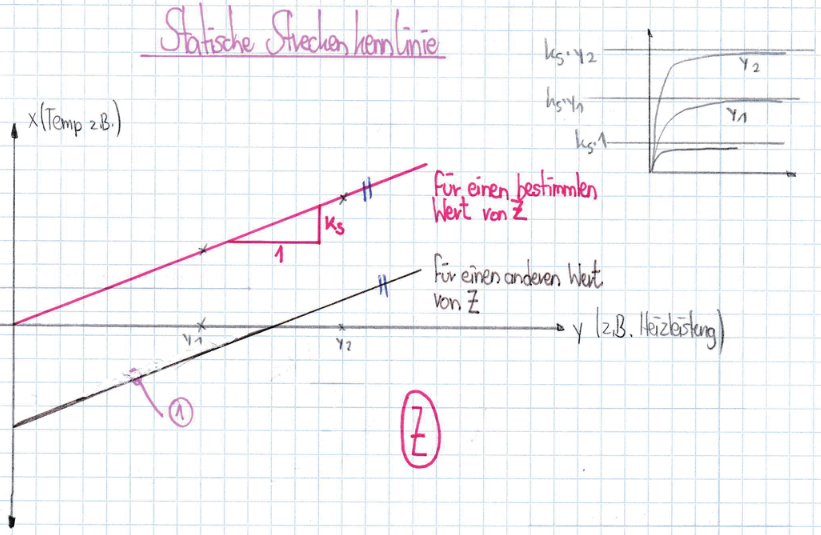 Statische Streckenkennlinie
ks·y2
ks·y1
ks·1
y2
y1
x (Temp z.B.)
für einen bestimmten
Wert von Z
ks
1
für einen anderen Wert
von Z
y1
y2
y (z.B. Heizleistung)
1
Z